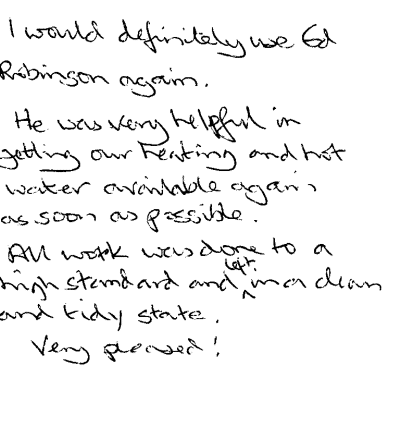 I would definitely use Ed
Robinson again.
He was very helpful in
getting our heating and hot
water available again
as soon as possible.
All work was done to a
high standard and left in a clean
and tidy state.
Very pleased!